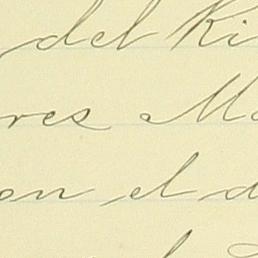 del Ri
res Ma
on el d